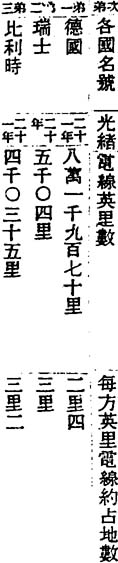 弟次 各國名號 光緒 電線英里數 每方英里電線約占地數
弟一 德國 二十一年 八萬一千九百七十里 二里四
弟二 瑞士 二十年 五千〇四里 三里
弟三 比利時 二十一年 四千〇三十五里 三里二